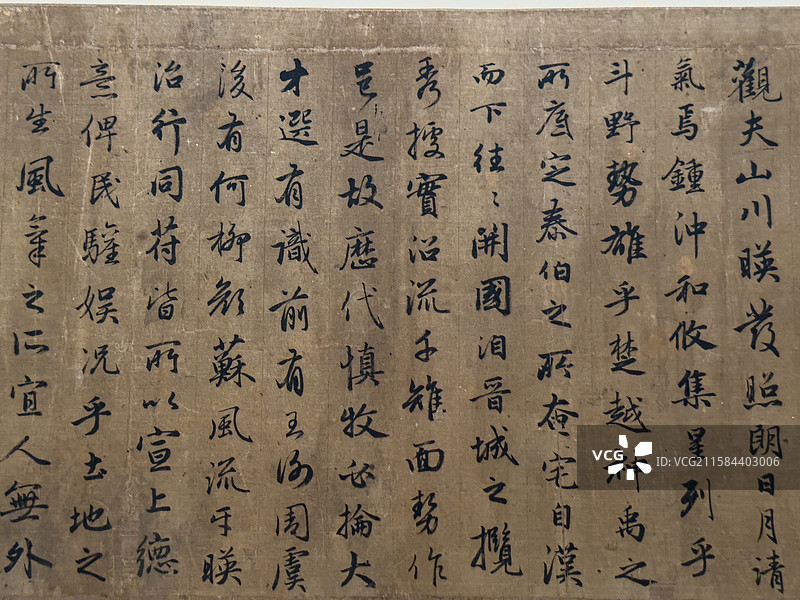 觀夫山川暎發照朗日月清
氣焉鍾沖和攸集星列乎
斗野勢雄乎楚越神禹之
所底定泰伯之所奄宅自漢
而下往〻開國洎晉城之攬
秀據實沿流千雉面勢作
邑是故歷代慎牧必掄大
才選有識前有王謝周虞
後有何柳顏蘇風流互暎
治行同苻皆所以宣上德
意俾民驩娛況乎土地之
所生風氣之所宜人無外
VCG
VCG
ID:VCG211584403006